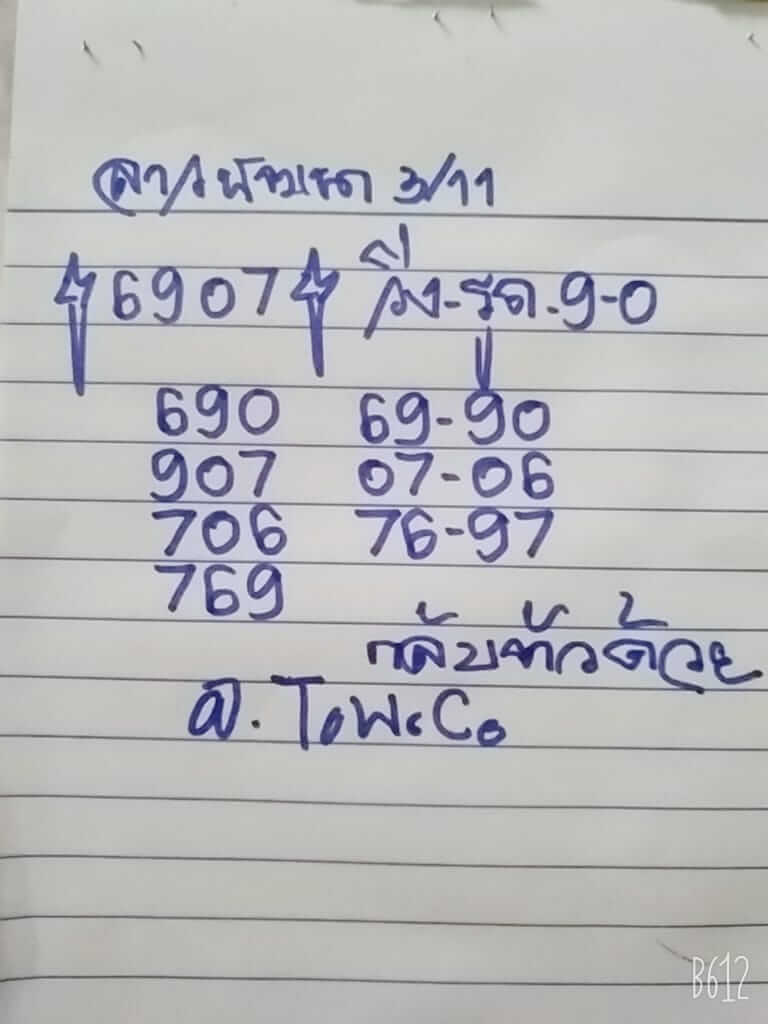 ลาวพัฒนา 3/11
6907 วิ่ง-รูด.9-0
690 69-90
907 07-06
706 76-97
769
กลับหัวด้วย
B612